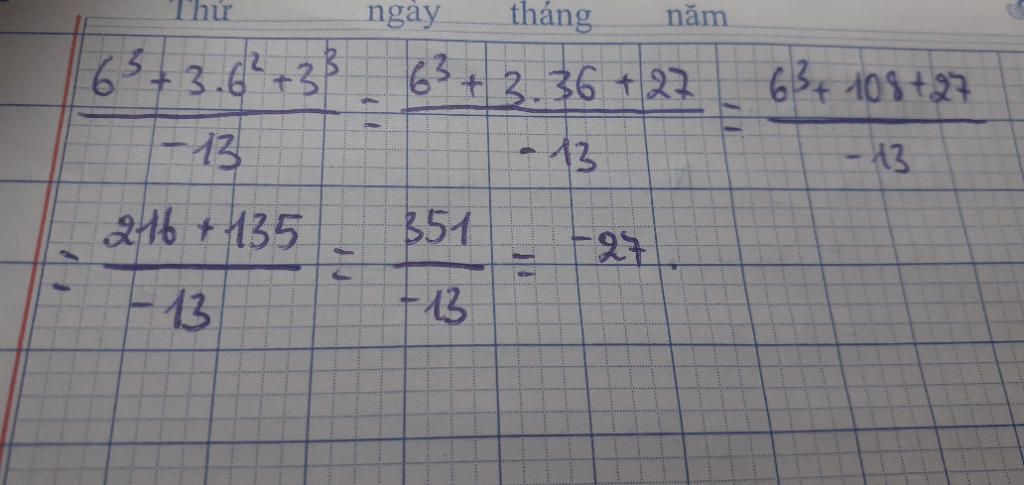 Thứ ngày tháng năm
(6³ + 3.6² + 3³)/(-13) = (6³ + 3.36 + 27)/(-13) = (6³ + 108 + 27)/(-13)
= (216 + 135)/(-13) = 351/(-13) = -27.